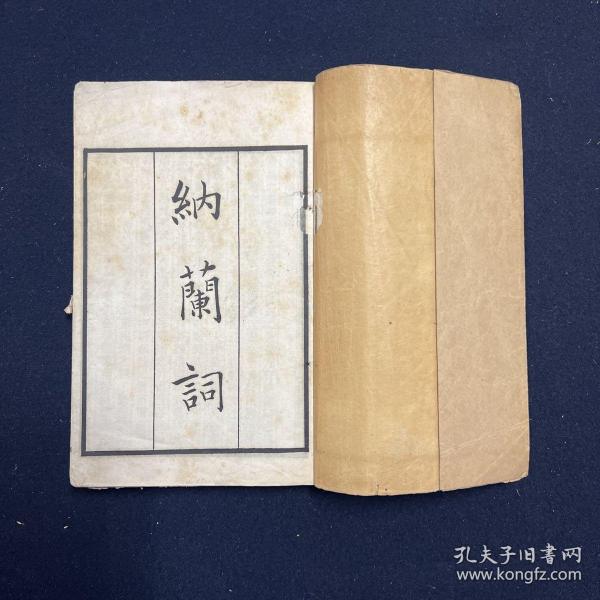 納蘭詞
孔夫子旧書网
www.kongfz.com